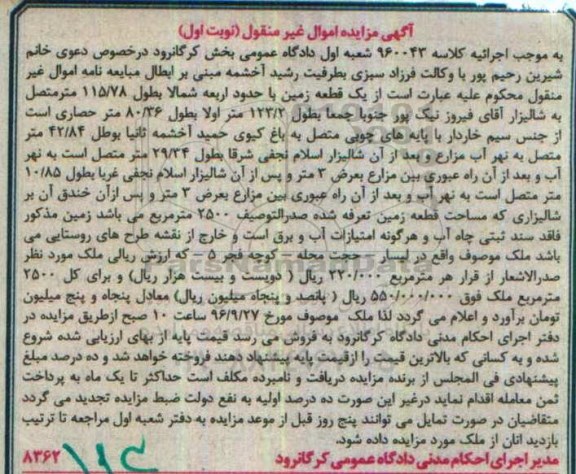 آگهی مزایده اموال غیر منقول (نوبت اول)
به موجب اجرائیه کلاسه ۹۶۰۰۴۳ شعبه اول دادگاه عمومی بخش کرگانرود درخصوص دعوی خانم
شیرین رحیم پور با وکالت فرزاد سبزی بطرفیت رشید آخشمه مبنی بر ابطال مبایعه نامه اموال غیر
منقول محکوم علیه عبارت است از یک قطعه زمین با حدود اربعه شمالا بطول ۱۱۵/۷۸ مترمتصل
به شالیزار آقای فیروز نیک پور جنوبا جمعا بطول ۱۲۳/۲ متر اولا بطول ۸۰/۳۶ متر حصاری است
از جنس سیم خاردار با پایه های چوبی متصل به باغ کیوی حمید آخشمه ثانیا بوطل ۴۲/۸۴ متر
متصل به نهر آب مزارع و بعد از آن شالیزار اسلام نجفی شرقا بطول ۲۹/۳۴ متر متصل است به نهر
آب و بعد از آن راه عبوری بین مزارع بعرض ۳ متر و پس از آن شالیزار اسلام نجفی غربا بطول ۱۰/۸۵
متر متصل است به نهر آب و بعد از آن راه عبوری بین مزارع بعرض ۳ متر و پس ازآن خندق آن بر
شالیزاری که مساحت قطعه زمین تعرفه شده صدرالتوصیف ۲۵۰۰ مترمربع می باشد زمین مذکور
فاقد سند ثبتی چاه آب و هرگونه امتیازات آب و برق است و خارج از نقشه طرح های روستایی می
باشد ملک موصوف واقع در لیسار – حجت محله – کوچه فجر ۵ – که ارزش ریالی ملک مورد نظر
صدرالاشعار از قرار هر مترمربع ۲۲۰/۰۰۰ ریال ( دویست و بیست هزار ریال) و برای کل ۲۵۰۰
مترمربع ملک فوق ۵۵۰/۰۰۰/۰۰۰ ریال ( پانصد و پنجاه میلیون ریال) معادل پنجاه و پنج میلیون
تومان برآورد و اعلام می گردد لذا ملک موصوف مورخ ۹۶/۹/۲۷ ساعت ۱۰ صبح ازطریق مزایده در
دفتر اجرای احکام مدنی دادگاه کرگانرود به فروش می رسد قیمت پایه از بهای ارزیابی شده شروع
شده و به کسانی که بالاترین قیمت را ازقیمت پایه پیشنهاد دهند فروخته خواهد شد و ده درصد مبلغ
پیشنهادی فی المجلس از برنده مزایده دریافت و نامبرده مکلف است حداکثر تا یک ماه به پرداخت
ثمن معامله اقدام نماید درغیر این صورت ده درصد اولیه به نفع دولت ضبط مزایده تجدید می گردد
متقاضیان در صورت تمایل می توانند پنج روز قبل از موعد مزایده به دفتر شعبه اول مراجعه تا ترتیب
بازدید انان از ملک مورد مزایده داده شود.
مدیر اجرای احکام مدنی دادگاه عمومی کرگانرود ۸۳۶۲